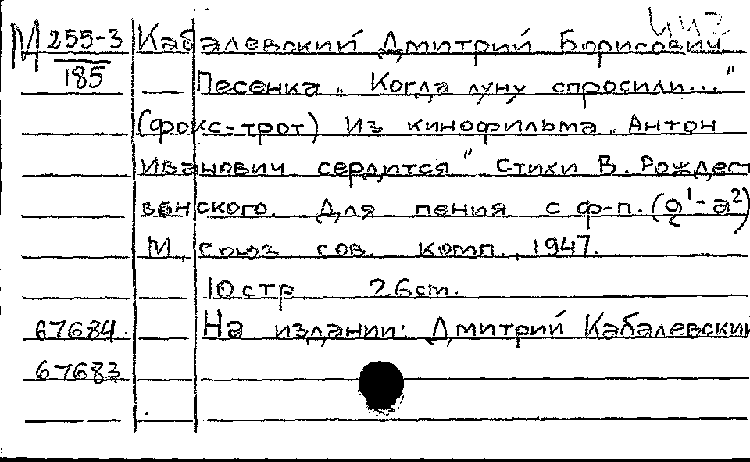 442
М 255-3 Кабалевский Дмитрий Борисович
185 — Песенка „Когда луну спросили..."
(фокс-трот) Из кинофильма „Антон
Иванович сердится" Стихи В. Рождест
венского. Для пения с ф-п. (a¹-a²)
М., Союз сов. комп., 1947.
10 стр 26 cm.
67684. На издании: Дмитрий Кабалевский
67683